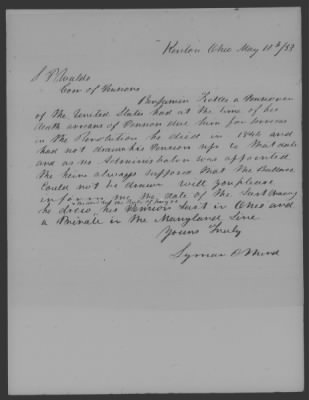 Kenton Ohio May 11th/53
L P Waldo
Com of Pensions
Benjamin a Pensioner
of the United States had at the time of his
death arrears of Pension due him for services
in the Revolution he died in 1842 and
had not drawn his Pension up to that date
and as no Administrator was appointed
the heirs always supposed that the Ballance
Could not be drawn will you please
inform me the date of the Last drawing
he drew his Pension Last in Ohio and
a Private in the Maryland Line
Yours Truly
Lyman